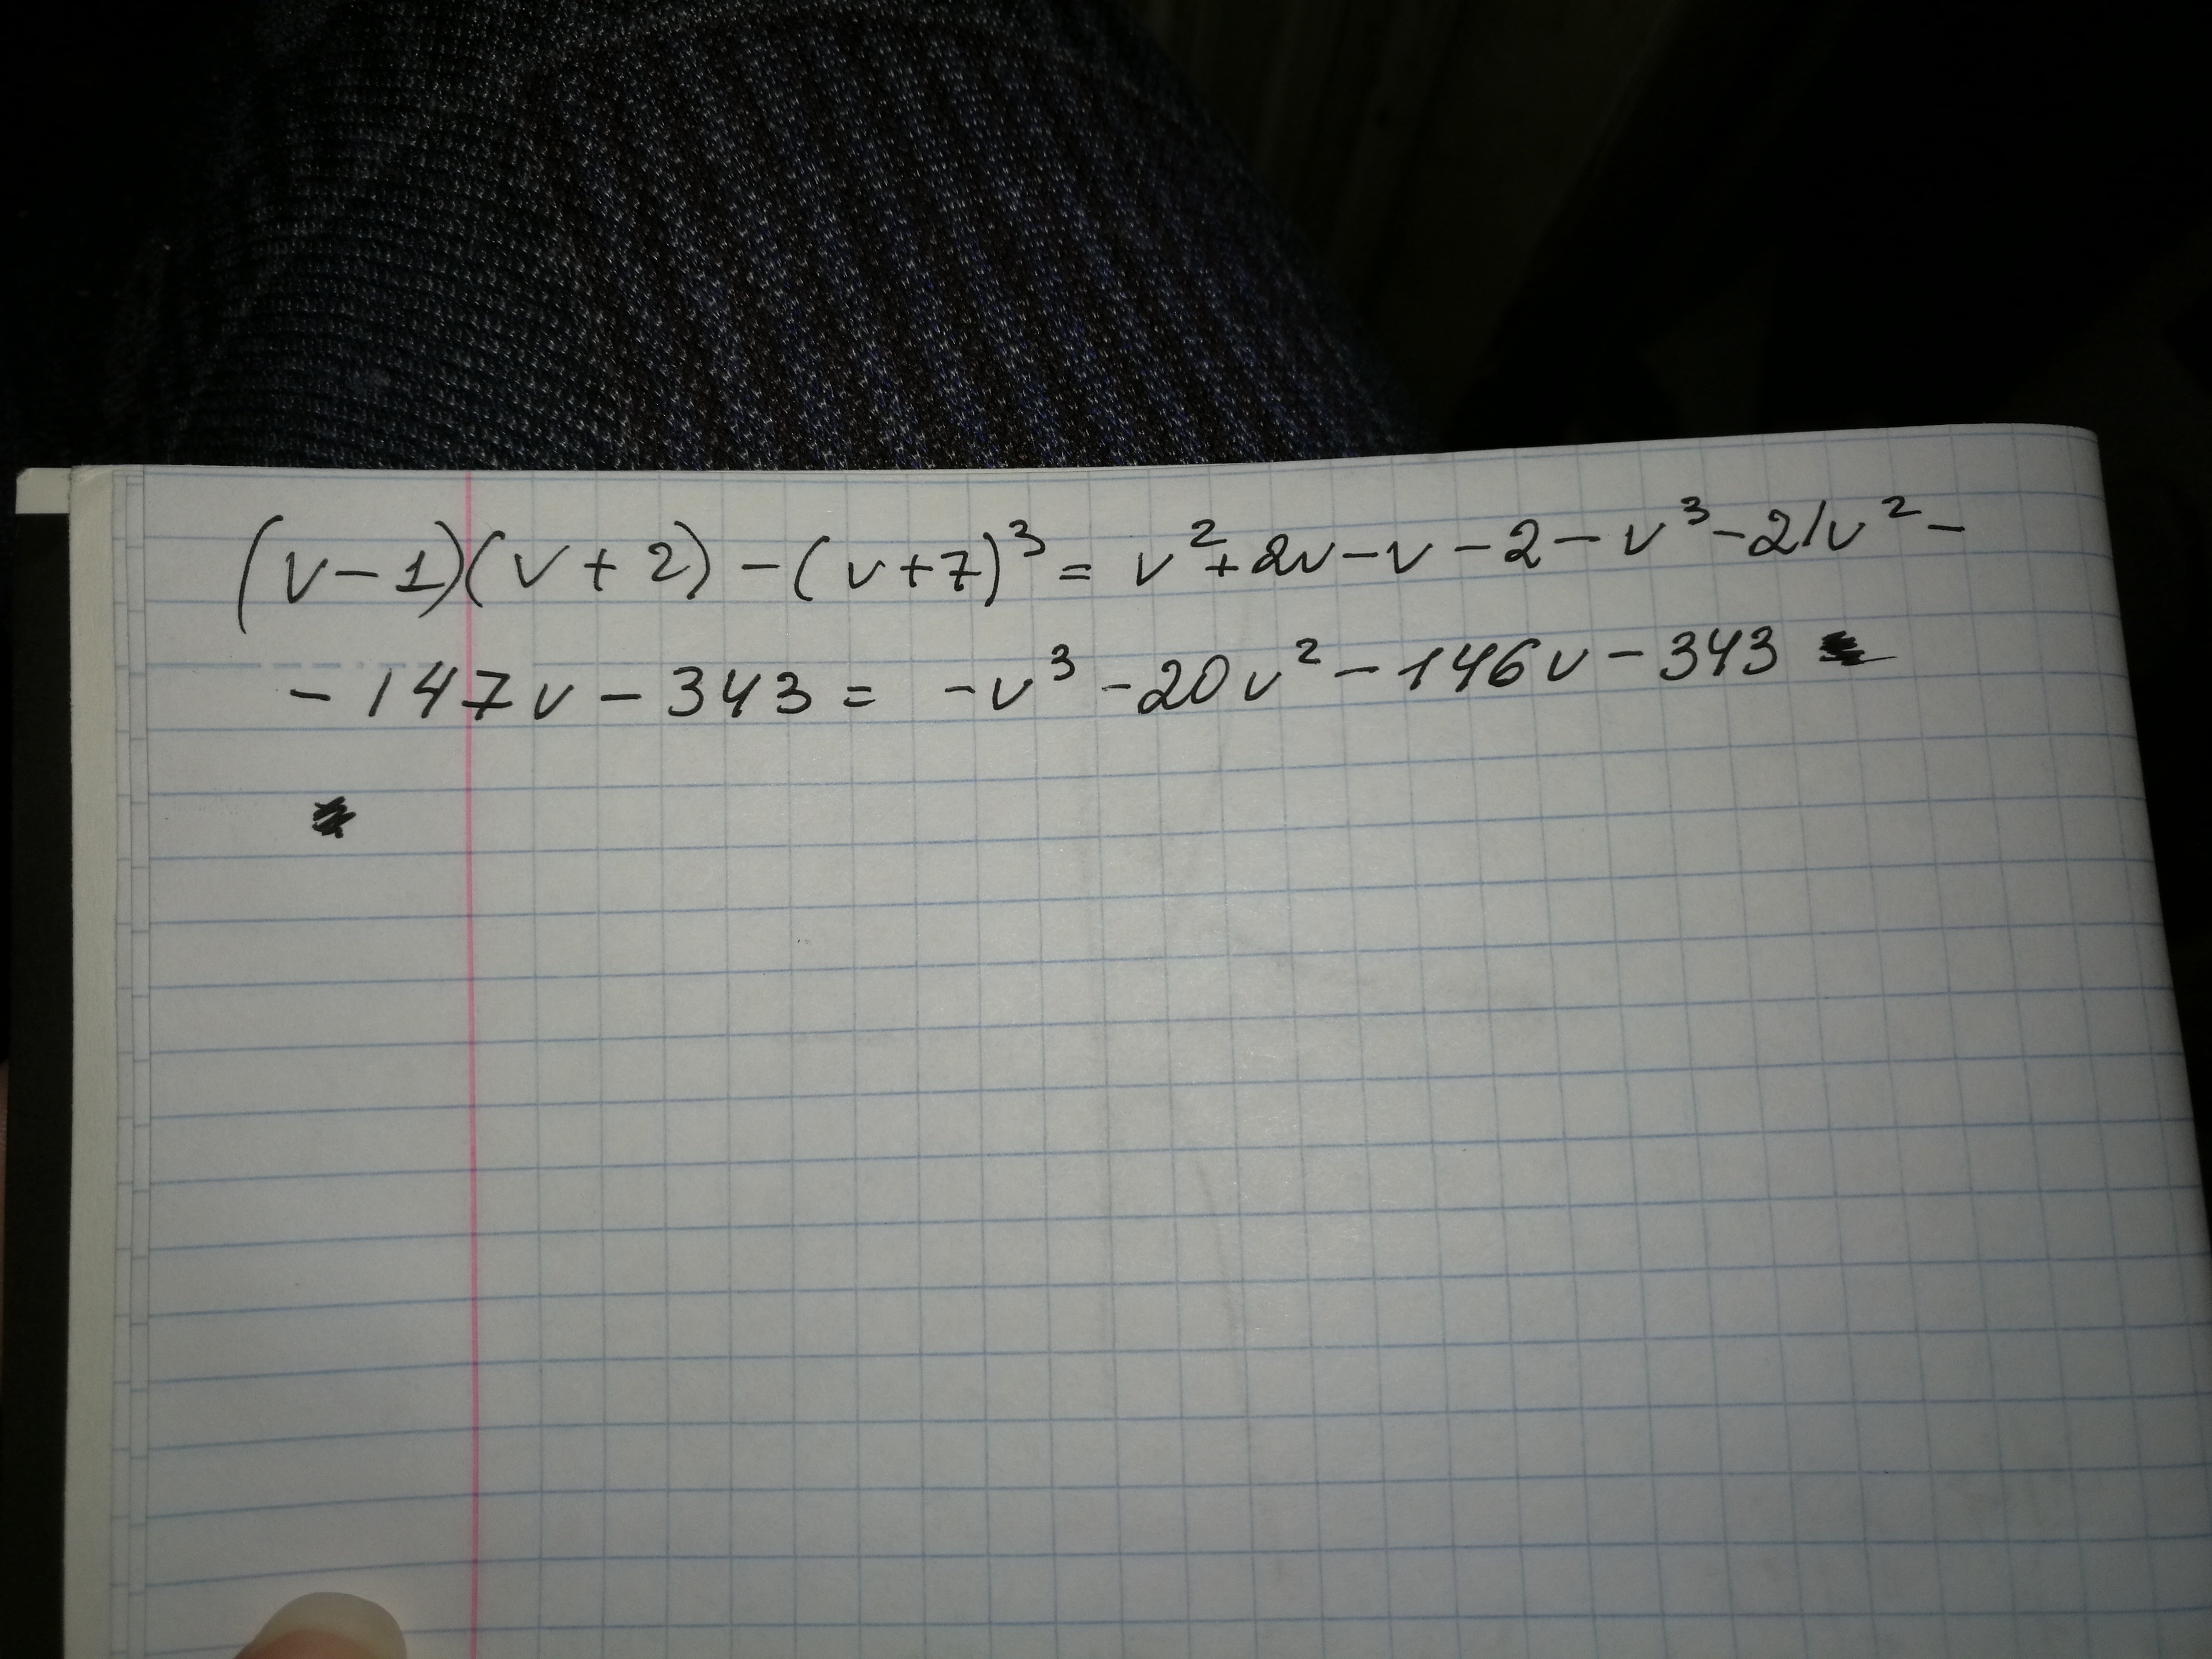 (v-1)(v+2)-(v+7)³= v²+2v-v-2-v³-21v²-
-147v-343= -v³-20v²-146v-343